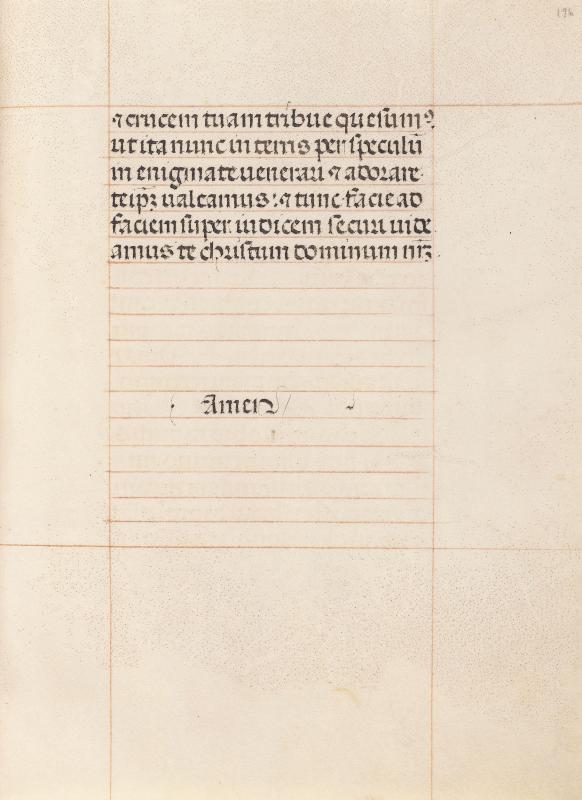 194
⁊ crucem tuam tribue quesumꝰ.
ut ita nunc in terris per speculū
in enigmate uenerari ⁊ adorare
teip̄ꝫ ualeamus: ⁊ tunc facie ad
faciem super iudicem securi uide
amus te christum dominum nr̄ꝫ
Amen